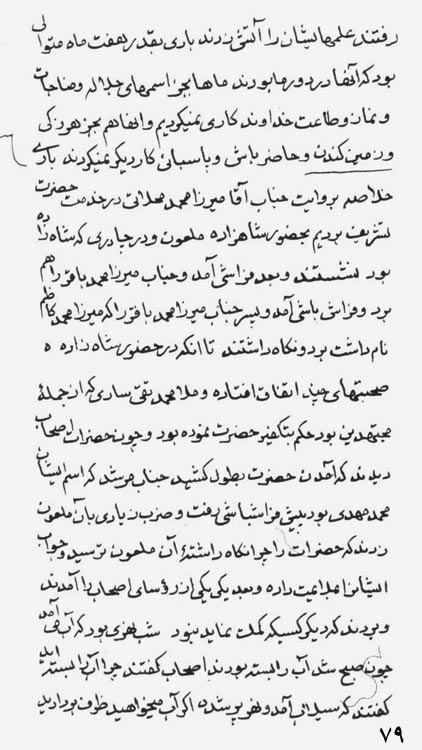 رفتند علمهایشان را آتش زدند باری بقدر هفت ماه متوالی
بود که آنها در دور ما بودند ماها بجز اسمهای جلاله و مناجات
و نماز و طاعت خداوند کاری نمیکردیم و آنها هم بجز هرزکی
و زمین کندن و حاضر باش و پاسبانی کار دیکر نمیکردند باری
خلاصه بروایت جناب آقا میرزا محمد محلاتی در خدمت حضرت
تشریف بردیم بحضور شاهزاده ملعون و در چادری که شاه زاده
بود نشستند و بعد فراشی آمد و جناب میرزا محمد باقر را هم
برد و فراش باشی آمد و پسر جناب میرزا محمد باقر را که میرزا محمد کاظم
نام داشت برد و نکاه داشتند تا آنکه در حضور شاه زاده
صحبتهای چند اتفاق افتاده و ملا محمد تقی ساری که از جملهٔ
مجتهدین بود حکم بتکفیر حضرت نموده بود و چون حضرات اصحاب
دیدند که آمدن حضرت بطول کشید جناب مرشد که اسم ایشان
محمد مهدی بود پیش فراشباشی رفت و حرف زیادی بآن ملعون
زدند که حضرات را چرا نکاه داشتهٔ آن ملعون ترسید و جواب
ایشانرا بملایمت داده و بعد یکی یکی از رؤسای اصحاب را آمدند
و بردند که دیکر کسیکه کمک نماید نبود شب بود که آب می آمد
چون صبح شد آب را بسته بودند اصحاب کفتند چرا آب را بسته اید
کفتند که سیلاب آمد و نهر پر شده اکر آب میخواهید ظرف بدارید
۷۹